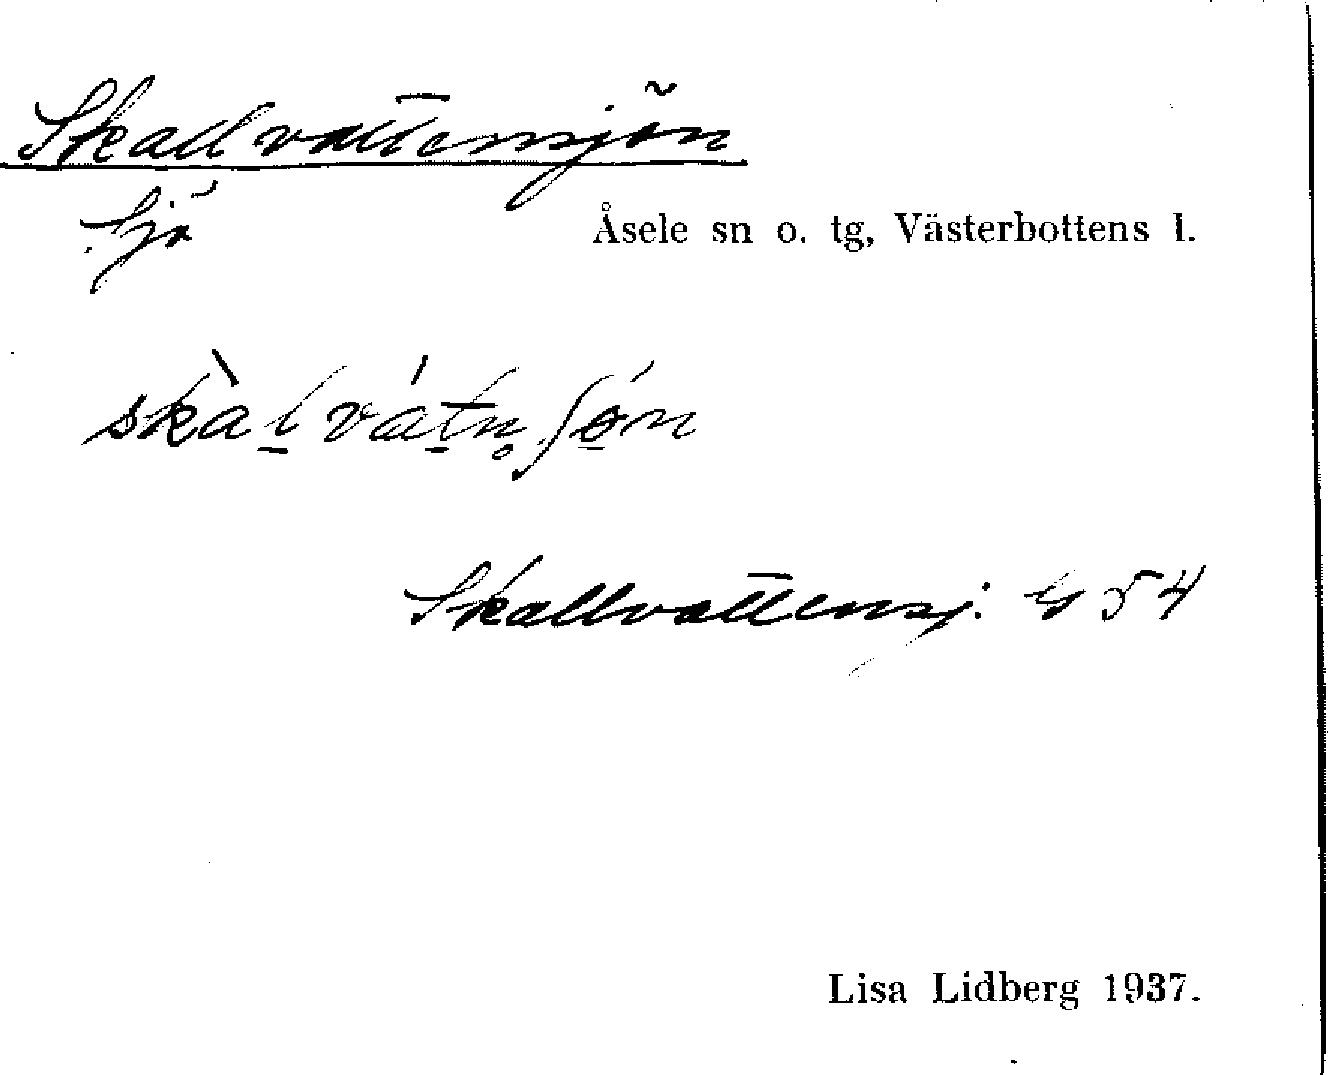 Skallvattensjön
Sjö
Åsele sn o. tg, Västerbottens l.
skàl̠vát̠n̥ʃǿ̠n
Skallvattensj. G 54
Lisa Lidberg 1937.